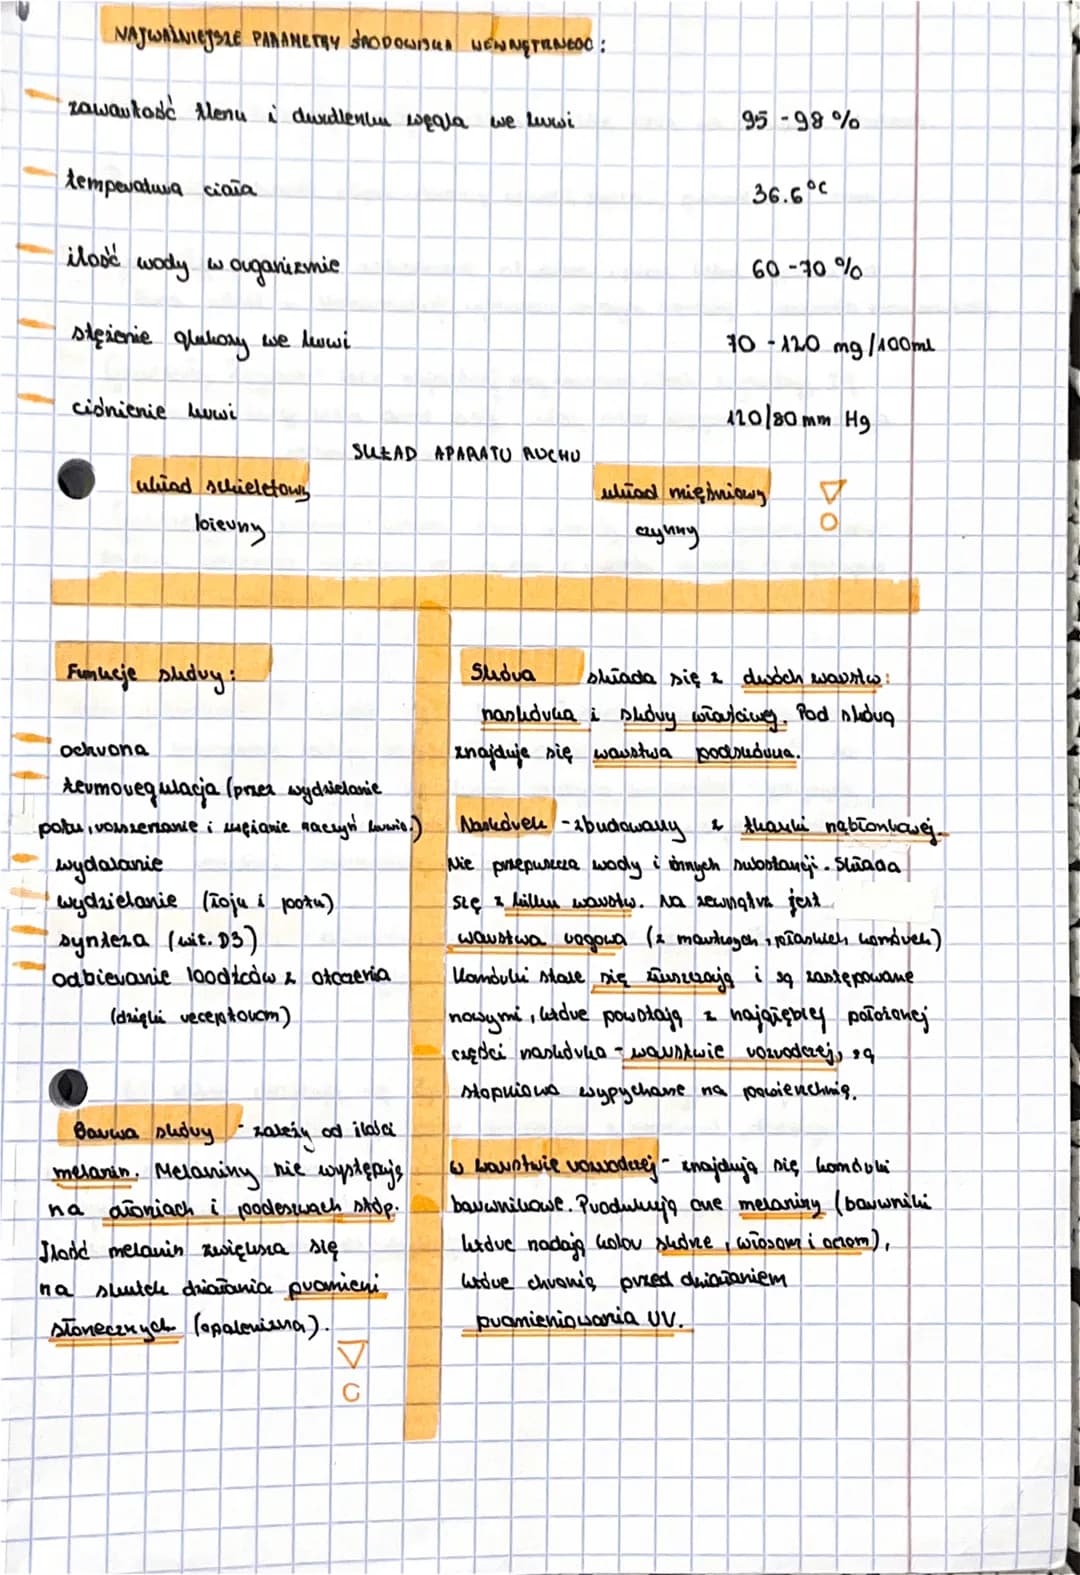 NAJWAŻNIEJSZE PARAMETRY ŚRODOWISKA WEWNĘTRZNEGO:
zawartość tlenu i dwutlenku węgla we krwi 95 - 98 %
temperatura ciała 36.6°C
ilość wody w organizmie 60 - 70 %
stężenie glukozy we krwi 70 - 120 mg/100ml
ciśnienie krwi 120/80 mm Hg
SKŁAD APARATU RUCHU
układ szkieletowy układ mięśniowy
bierny czynny
Funkcje skóry:
ochrona
termoregulacja (przez wydzielanie
potu, rozszerzanie i zwężanie naczyń krwio.)
wydalanie
wydzielanie (łoju i potu)
synteza (wit. D3)
odbieranie bodźców z otoczenia
(dzięki receptorom)
Barwa skóry - zależy od ilości
melanin. Melaniny nie występują
na dłoniach i podeszwach stóp.
Ilość melanin zwiększa się
na skutek działania promieni
słonecznych (opalenizna).
Skóra składa się z dwóch warstw:
naskórka i skóry właściwej. Pod skórą
znajduje się warstwa podskórna.
Naskórek - zbudowany z tkanki nabłonkowej.
Nie przepuszcza wody i innych substancji. Składa
się z kilku warstw. Na zewnątrz jest
warstwa rogowa (z martwych, płaskich komórek)
Komórki stale się złuszczają i są zastępowane
nowymi, które powstają z najgłębiej położonej
części naskórka - warstwie rozrodczej, są
stopniowo wypychane na powierzchnię.
W warstwie rozrodczej - znajdują się komórki
barwnikowe. Produkują one melaniny (barwniki
które nadają kolor skórze, włosom i oczom),
które chronią przed działaniem
promieniowania UV.